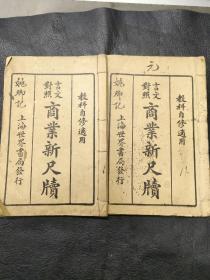 教科自修適用
言文對照
商業新尺牘
上海世界書局發行
姚卿記
元
教科自修適用
言文對照
商業新尺牘
上海世界書局發行
姚卿記